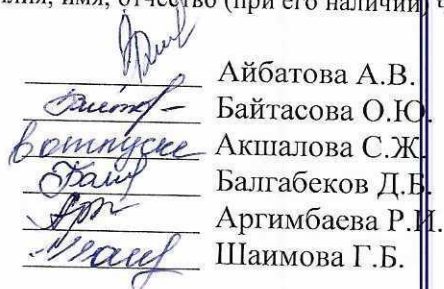 имя, отчество (при его наличии)
Айбатова А.В.
Байтасова О.Ю.
в отпуске Акшалова С.Ж.
Балгабеков Д.Б.
Аргимбаева Р.И.
Шаимова Г.Б.